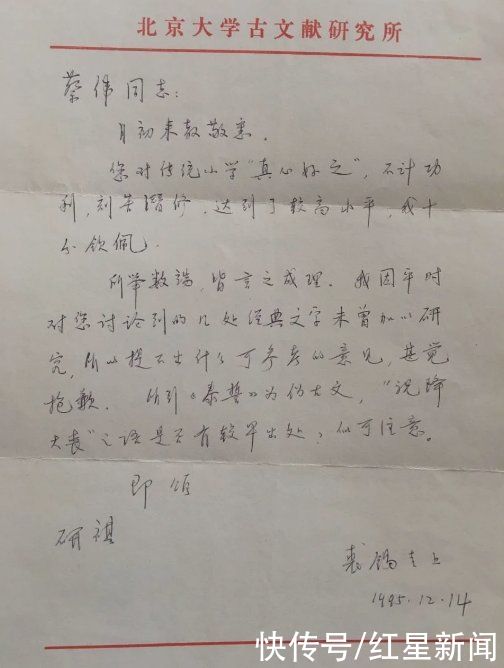 北京大学古文献研究所
蔡伟同志：
月初来教敬悉。
您对传统小学"真心好之"，不计功
利，刻苦潜修，达到了较高水平，我十
分钦佩。
所举数端，皆言之成理。我因平时
对您讨论到的几处经典文字未曾加以研
究，所以提不出什么可参考的意见，甚觉
抱歉。所引《泰誓》为伪古文，"祝降
大丧"之语是否有较早出处？似可注意。
即颂
研祺
裘锡圭上
1995.12.14
快传号/红星新闻